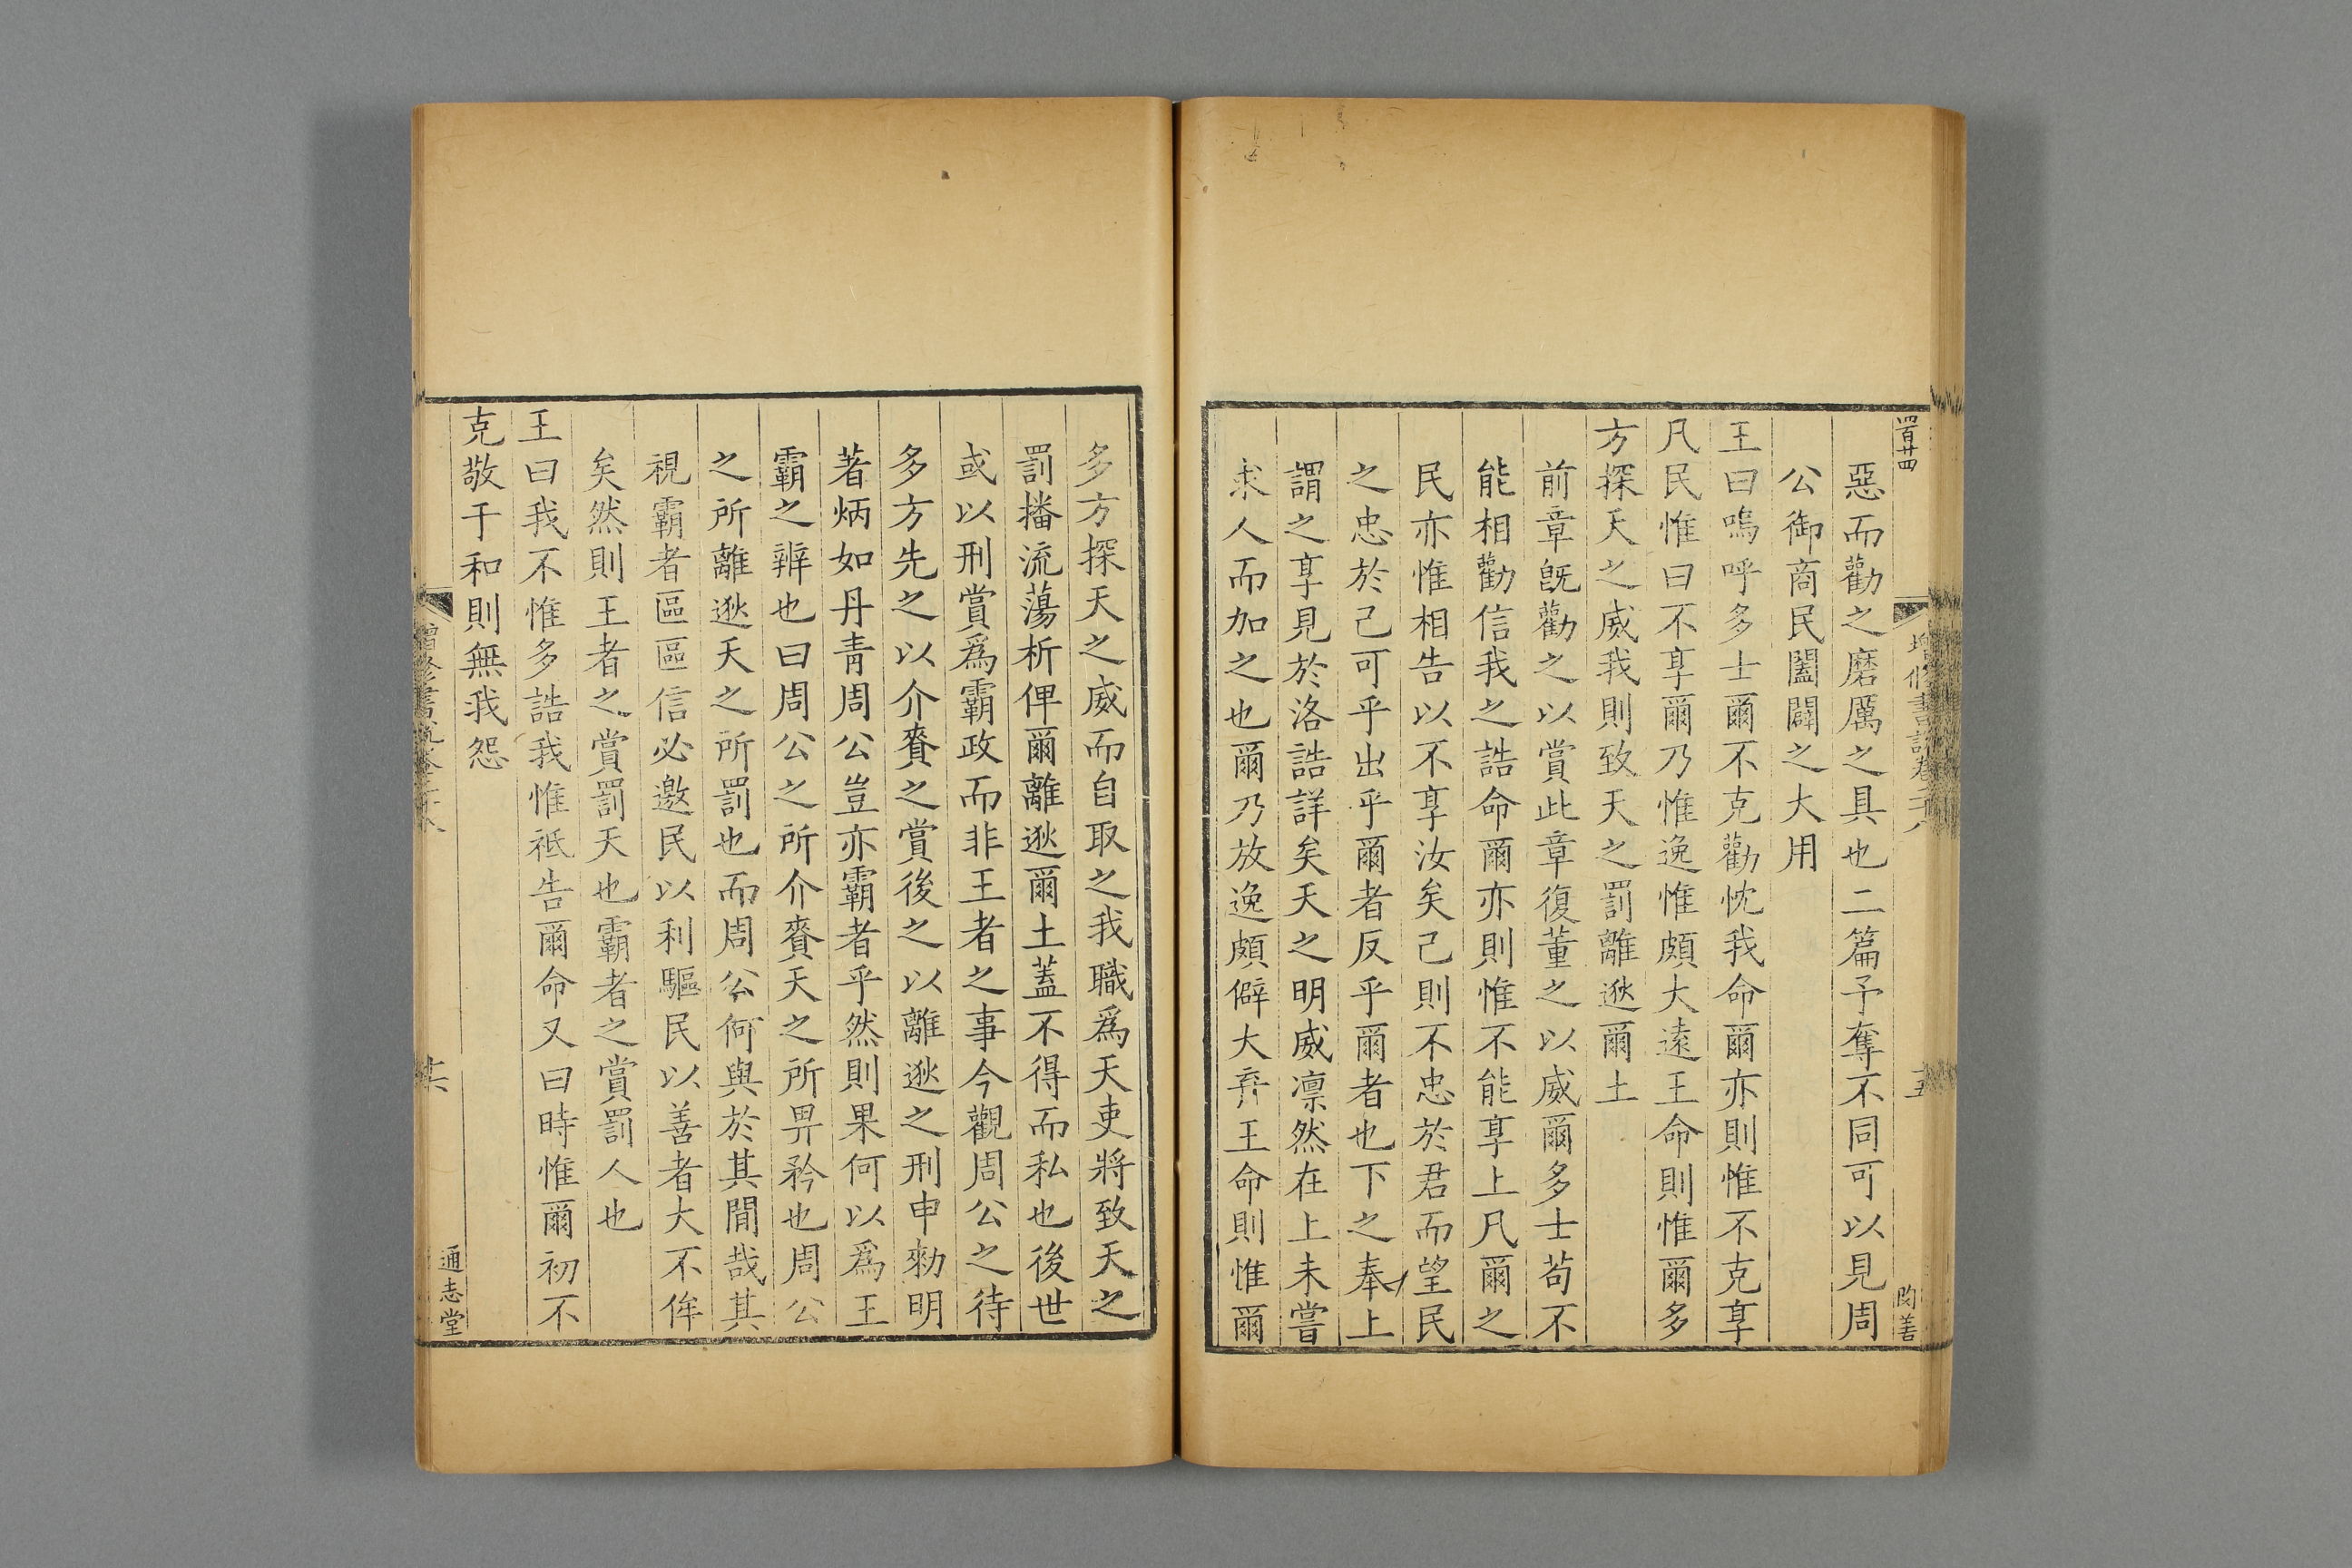 四百廿四
增修書說卷二十八
十五
閔善
惡而勸之磨厲之具也二篇予奪不同可以見周
公御商民闔闢之大用
王曰嗚呼多士爾不克勸忱我命爾亦則惟不克享
凡民惟曰不享爾乃惟逸惟頗大遠王命則惟爾多
方探天之威我則致天之罰離逖爾土
前章旣勸之以賞此章復董之以威爾多士苟不
能相勸信我之誥命爾亦則惟不能享上凡爾之
民亦惟相告以不享汝矣己則不忠於君而望民
之忠於己可乎出乎爾者反乎爾者也下之奉上
謂之享見於洛誥詳矣天之明威凛然在上未嘗
求人而加之也爾乃放逸頗僻大弃王命則惟爾
多方探天之威而自取之我職爲天吏將致天之
罰播流蕩析俾爾離逖爾土蓋不得而私也後世
或以刑賞爲霸政而非王者之事今觀周公之待
多方先之以介賚之賞後之以離逖之刑申勑明
著炳如丹青周公豈亦霸者乎然則果何以爲王
霸之辨也曰周公之所介賚天之所畀矜也周公
之所離逖天之所罰也而周公何與於其閒哉其
視霸者區區信必邀民以利驅民以善者大不侔
矣然則王者之賞罰天也霸者之賞罰人也
王曰我不惟多誥我惟祗告爾命又曰時惟爾初不
克敬于和則無我怨
增修書說卷二十八
十六
通志堂